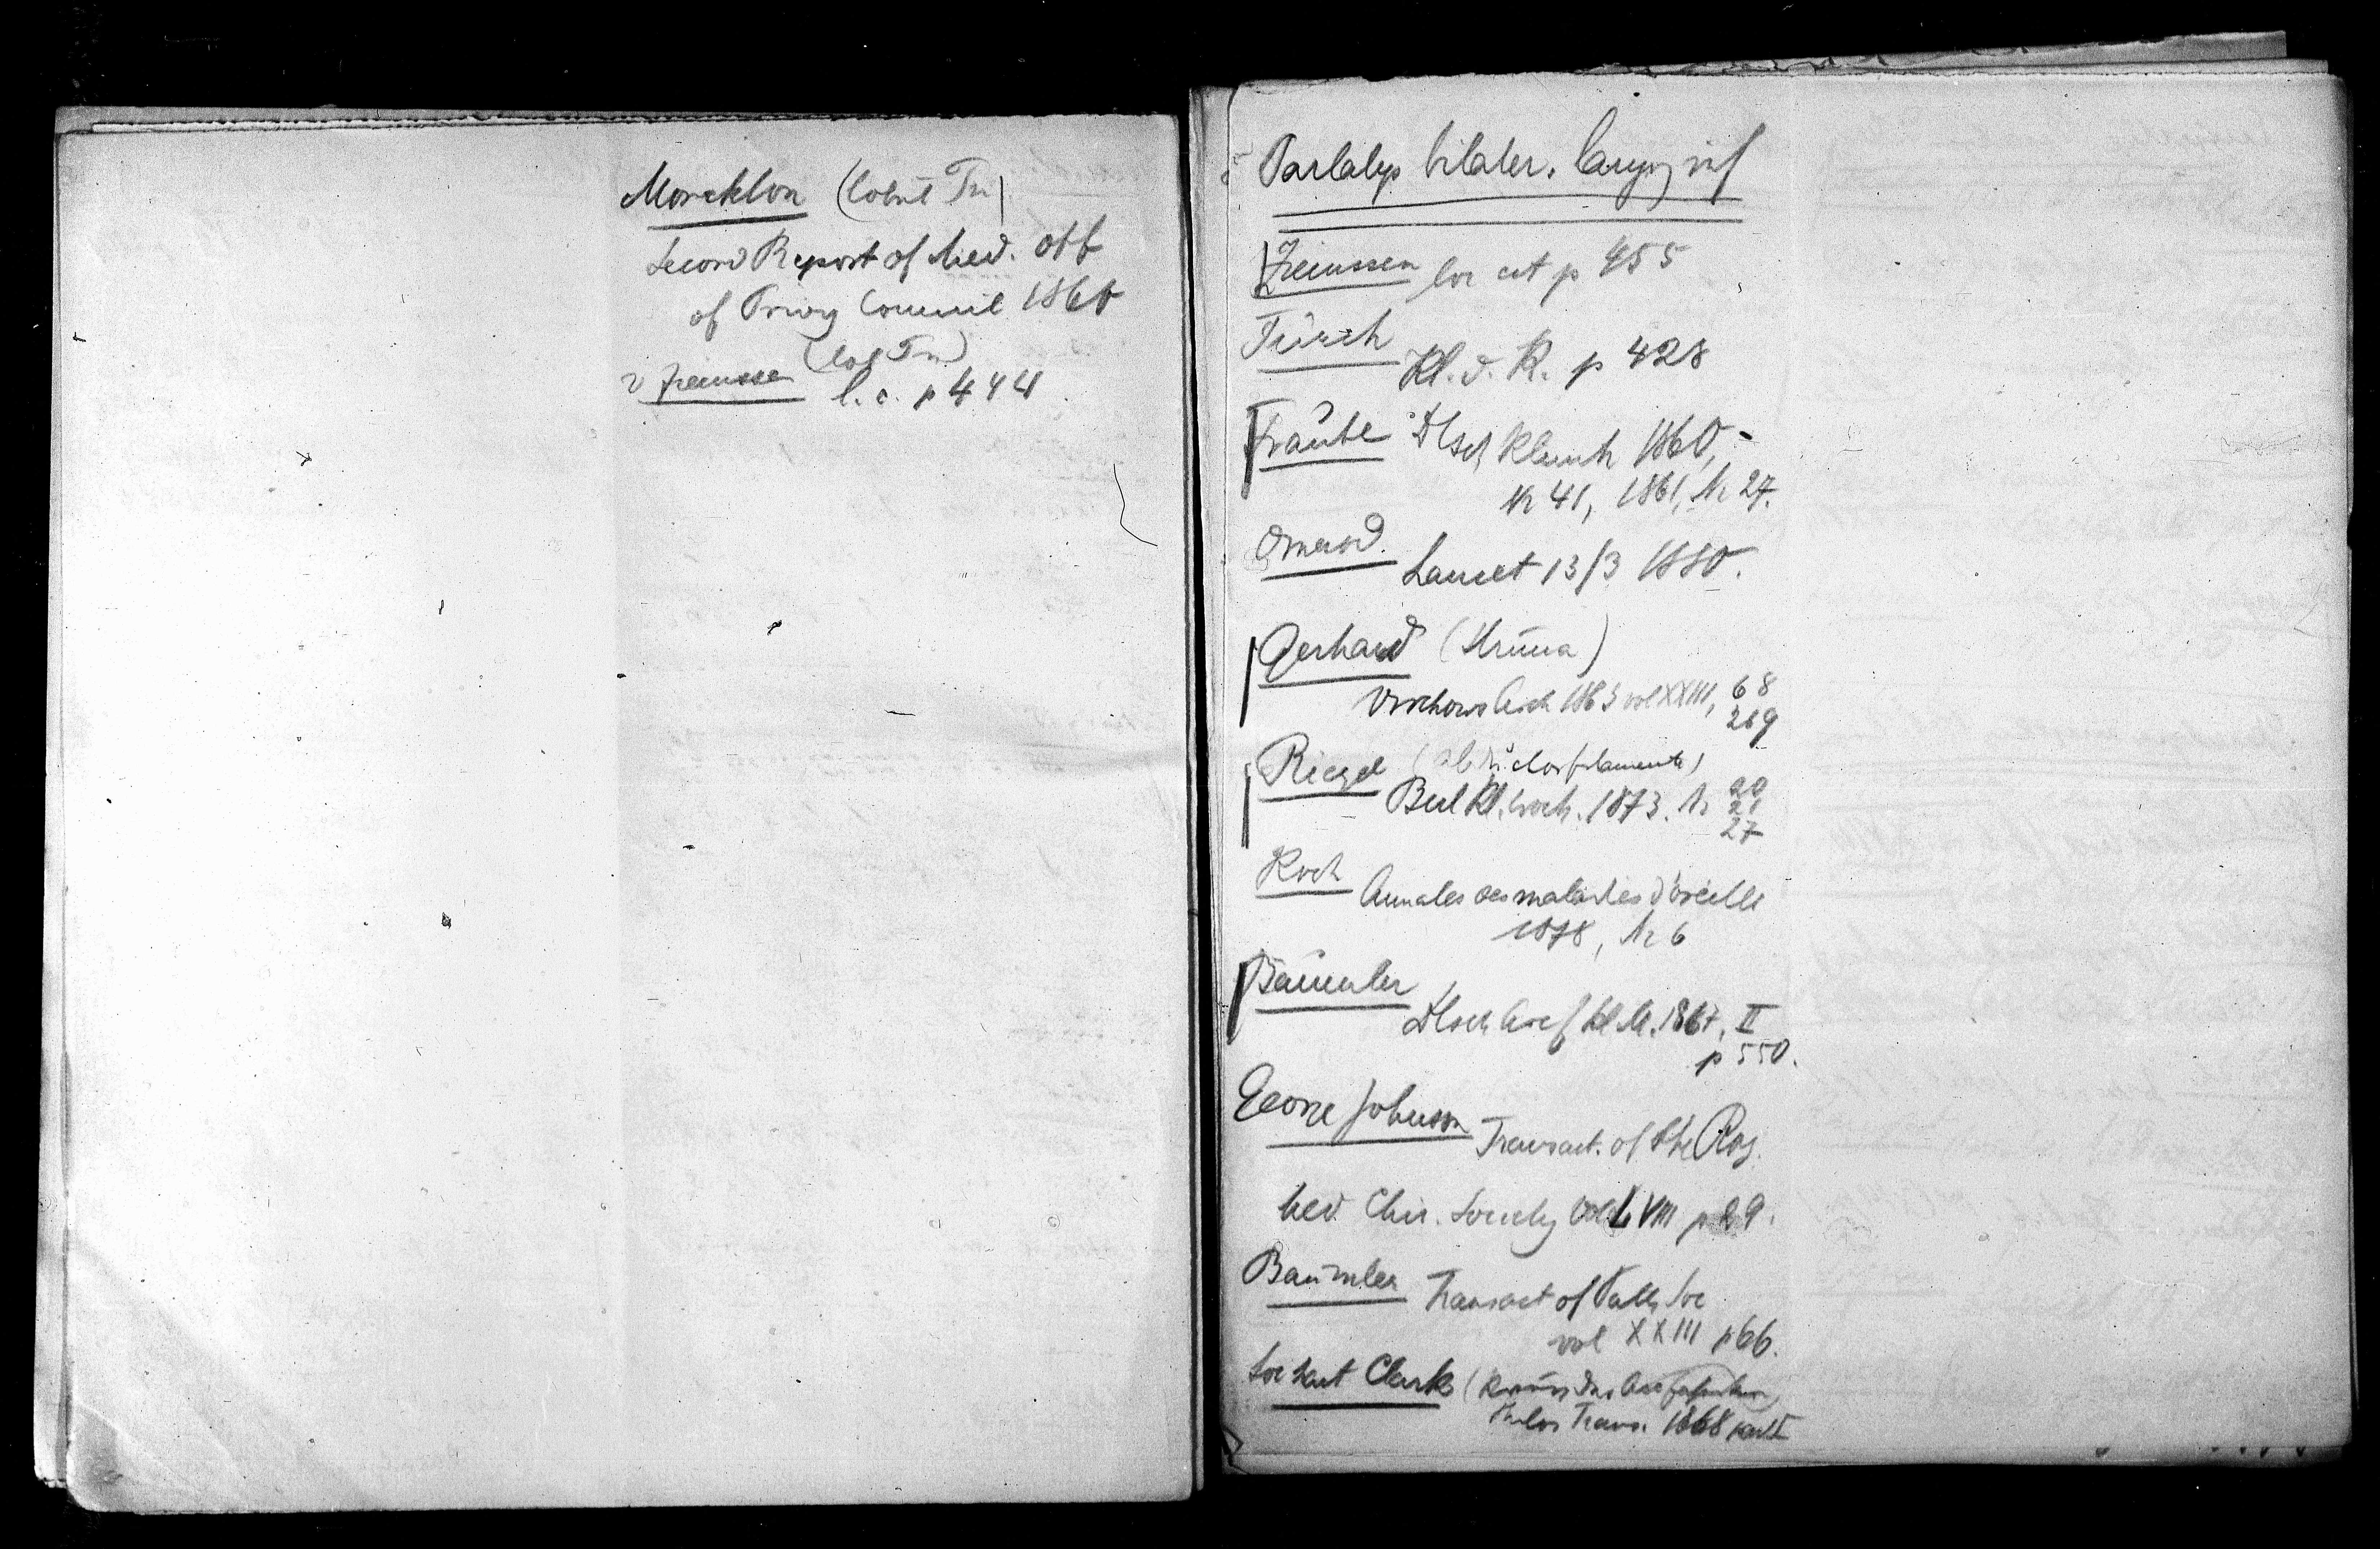 Morcklon (
Second Report of Med. Off
of Privy Council 1860
v Ziemssen l. c. p 444
Parlalys bilater. laryng inf
Ziemssen loc cit p 455
Türck
Kl. d. K. p 428
Traube Dtsch Klinik 1860,
Nr 41, 1861, Nr 27.
Lancet 13/3 1880.
Gerhard (Struma)
Virchows Arch 1863 vol XXIII, 68
269
Riegel
Berl Kl. Woch. 1873. Nr 20
21
27
Koch Annales des maladies d'oreille
1878, Nr 6
Bäumler
Dtsch Arch f kl. M. 1867, II
p 550.
George Johnson Transact. of the Roy.
Med Chir. Society Vol LVIII p 29.
Bäumler Transact of Path Soc
vol XXIII p 66.
Lockhart Clark
Philos Trans. 1868 part I